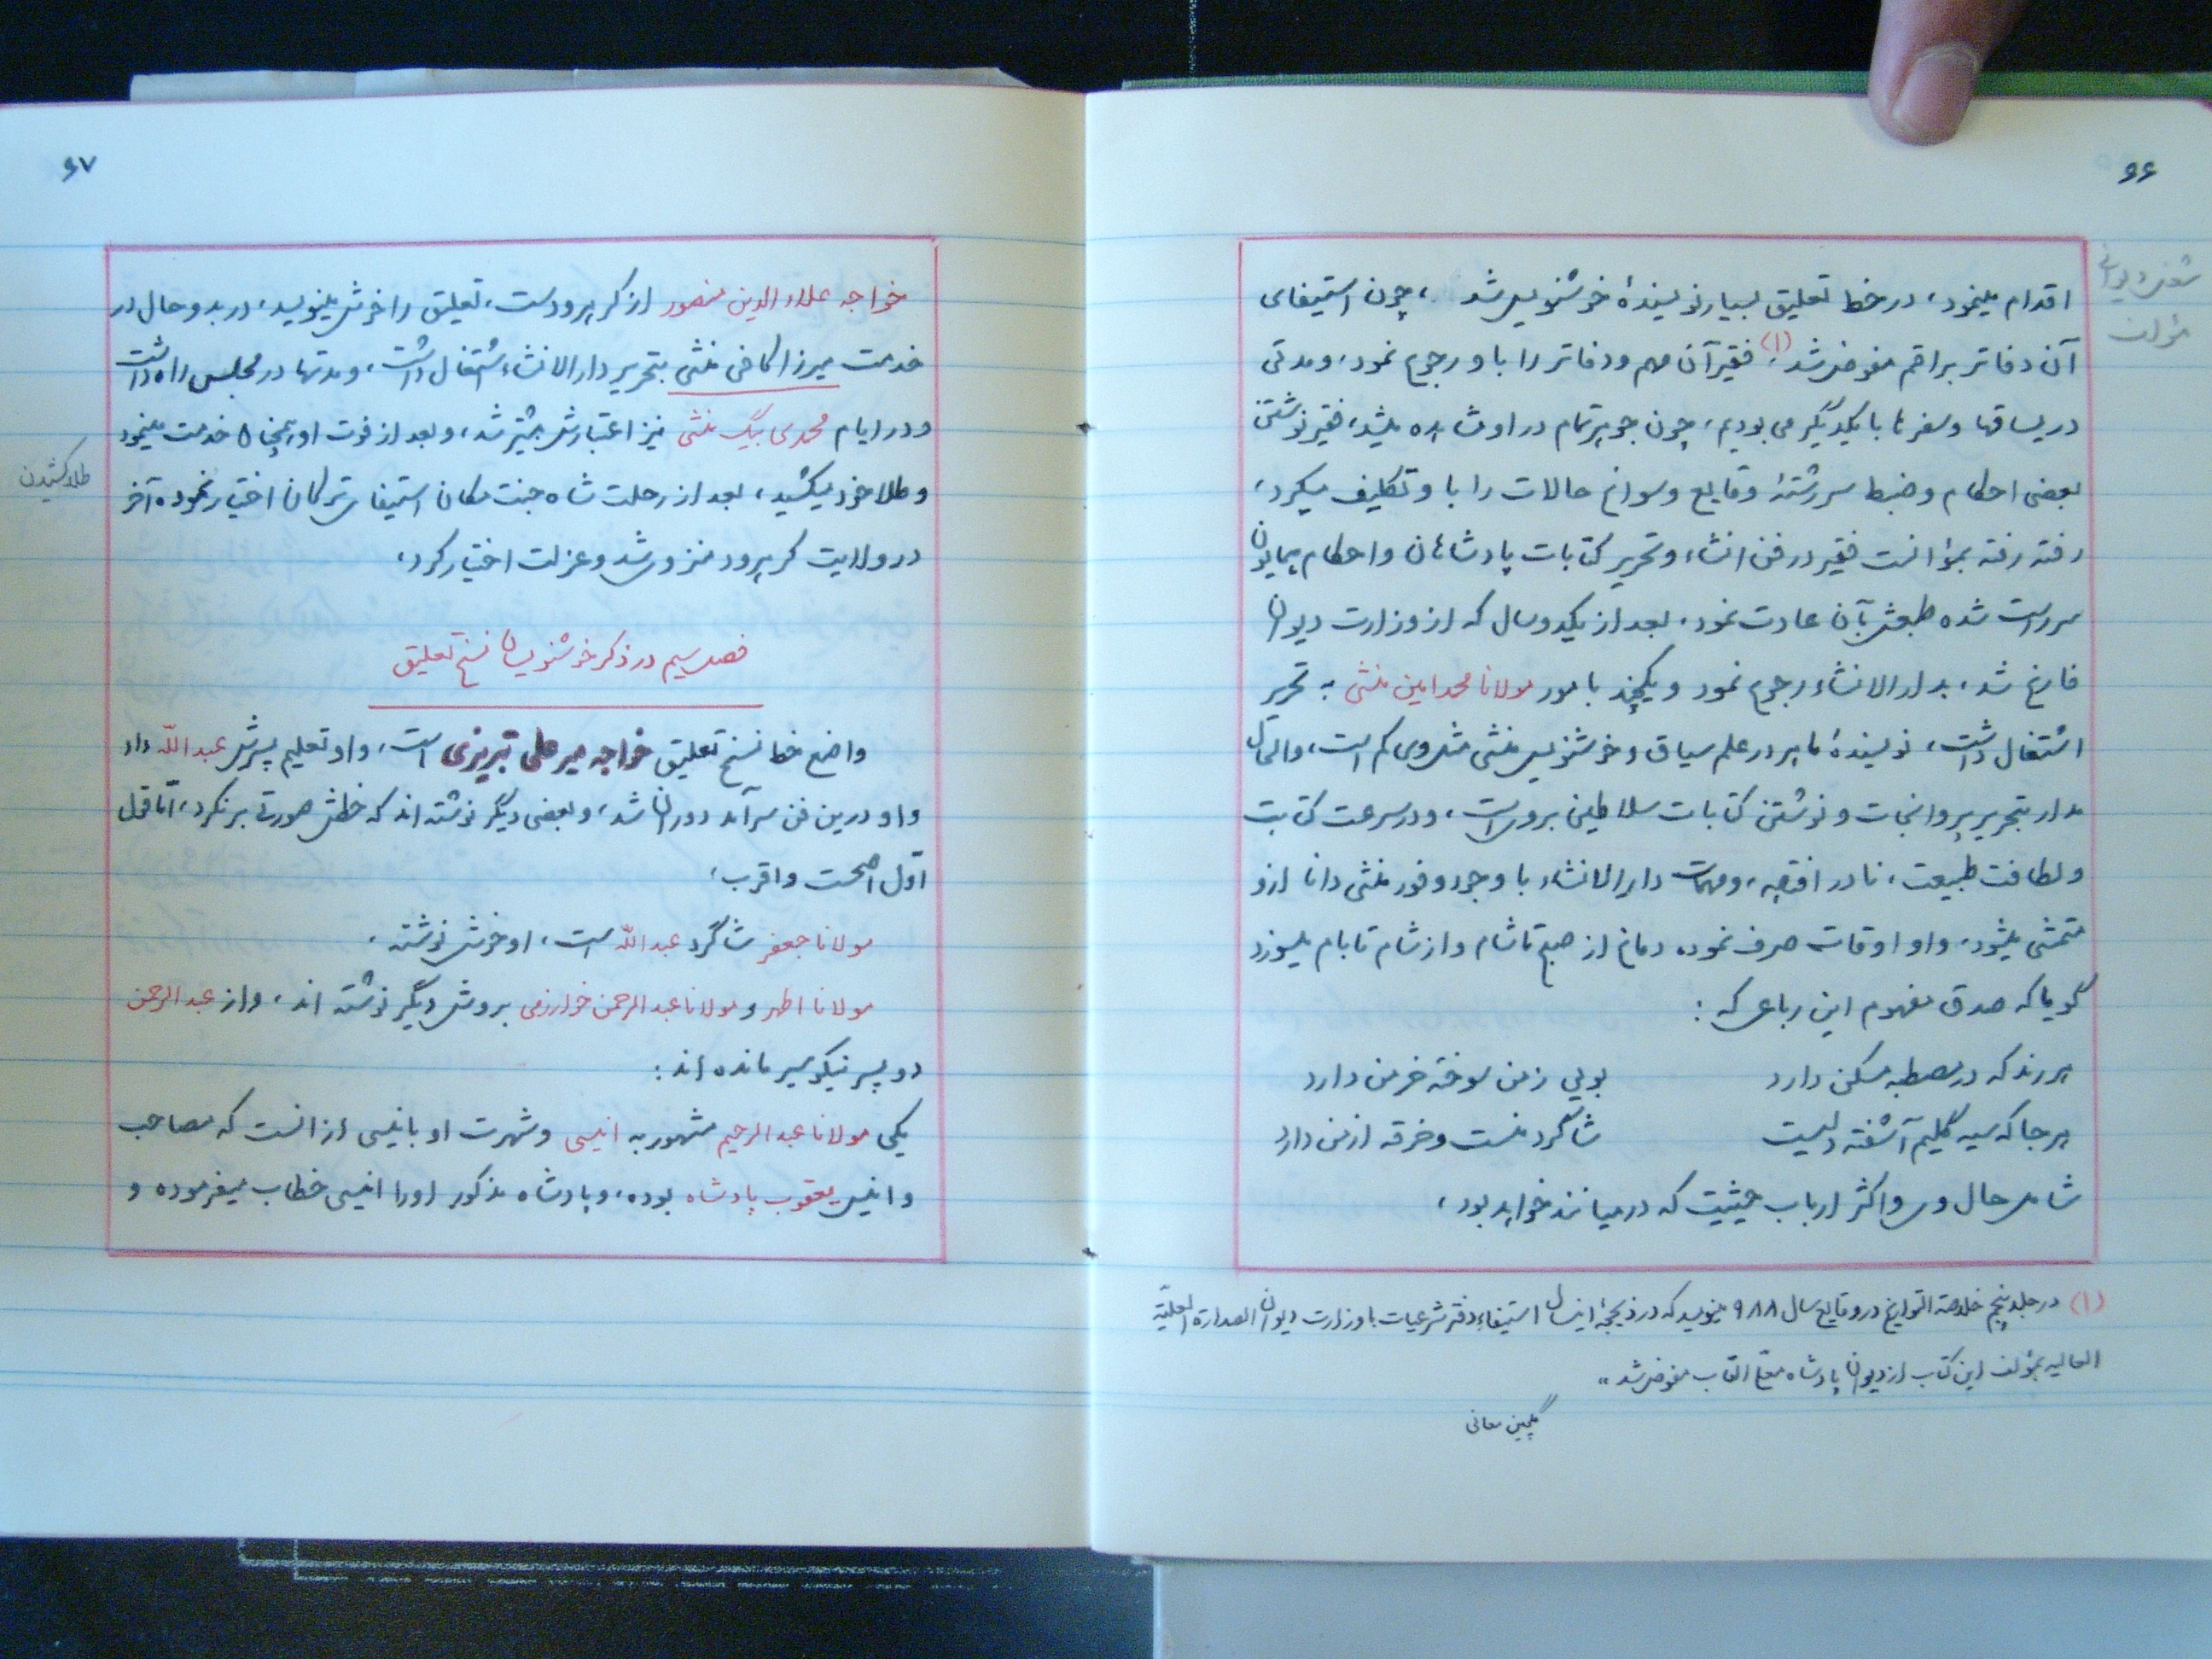 ۶۶
شغل دیوانی
مؤلف
اقدام مینمود، در خط تعلیق بسیار نویسندهٔ خوشنویس شد، چون استیفای
آن دفاتر براقم مفوض شد(۱)، فقیر آن مهم و دفاتر را باو رجوع نمود، و مدتی
در یساقها و سفرها با یکدیگر می بودیم، چون جوهر تمام در او مشاهده میشد، فقیر نوشتن
بعضی احکام و ضبط سررشتهٔ وقایع و سوانح حالات را باو تکلیف میکرد،
رفته رفته بمؤانست فقیر در فن انشاء و تحریر کتابات پادشاهان و احکام همایون
سررست شده طبعش بآن عادت نمود. بعد از یکدو سال که از وزارت دیوان
فارغ شد، بدار الانشاء رجوع نمود و یکچند بامور مولانا محمد امین منشی به تحریر
اشتغال داشت، نویسندهٔ ماهر در علم سیاق و خوشنویس منشی مثل وی کم است، والحال
مدار بتحریر پروانجات و نوشتن کتابات سلاطین بروست، و در سرعت کتابت
و لطافت طبیعت، نادر افتاده، و مهمات دار الانشاء با وجود وفور منشی دانا ازو
متمشی میشود، و او اوقات صرف نموده دماغ از صبح تا شام و از شام تا بام میسوزد
گویا که صدق مفهوم این رباعی که:
هر رند که در مصطبه مسکن دارد بویی ز من سوخته خرمن دارد
هر جا که سیه گلیم آشفته دلیست شاگرد منست و خرقه از من دارد
شامل حال وی و اکثر ارباب حیثیت که درمیانند خواهد بود،
(۱) در جلد پنجم خلاصة التواریخ در وقایع سال ۹۸۸ مینویسد که در ذیحجهٔ اینسال استیفاء دفتر شرعیات با وزارت دیوان الصدارة العلیّة
العالیه بمؤلف این کتاب از دیوان پادشاه مفوض شد "
گلچین معانی
۶۷
خواجه علاء الدین منصور از کرهرودست، تعلیق را خوش مینویسد، در بدو حال در
خدمت میرزا کافی منشی بتحریر دار الانشاء اشتغال داشت، و مدتها در مجلس راه داشت
و در ایام محمدی بیگ منشی نیز اعتبارش بیشتر شد، و بعد از فوت او همچنان خدمت مینمود
و طلا خود میکشید، بعد از رحلت شاه جنت مکان استیفای ترکمان اختیار نموده آخر
طلا کشیدن
در ولایت کرهرود منزوی شد و عزلت اختیار کرد،
فصل سیم در ذکر خوشنویسان نسخ تعلیق
واضع خط نسخ تعلیق خواجه میر علی تبریزی است، و او تعلیم پسرش عبد اللّه داد
و او درین فن سرآمد دوران شد، و بعضی دیگر نوشته اند که خطش صورتی برنکرد، امّا قول
اوّل اصحست و اقرب،
مولانا جعفر شاگرد عبد اللّه ست، او خوش نوشته،
مولانا اظهر و مولانا عبد الرحمن خوارزمی بروش دیگر نوشته اند، و از عبد الرحمن
دو پسر نیکوسیر مانده اند:
یکی مولانا عبد الرحیم مشهور به انیسی و شهرت او بانیسی از انست که مصاحب
و انیس یعقوب پادشاه بوده، و پادشاه مذکور اورا انیسی خطاب میفرموده و